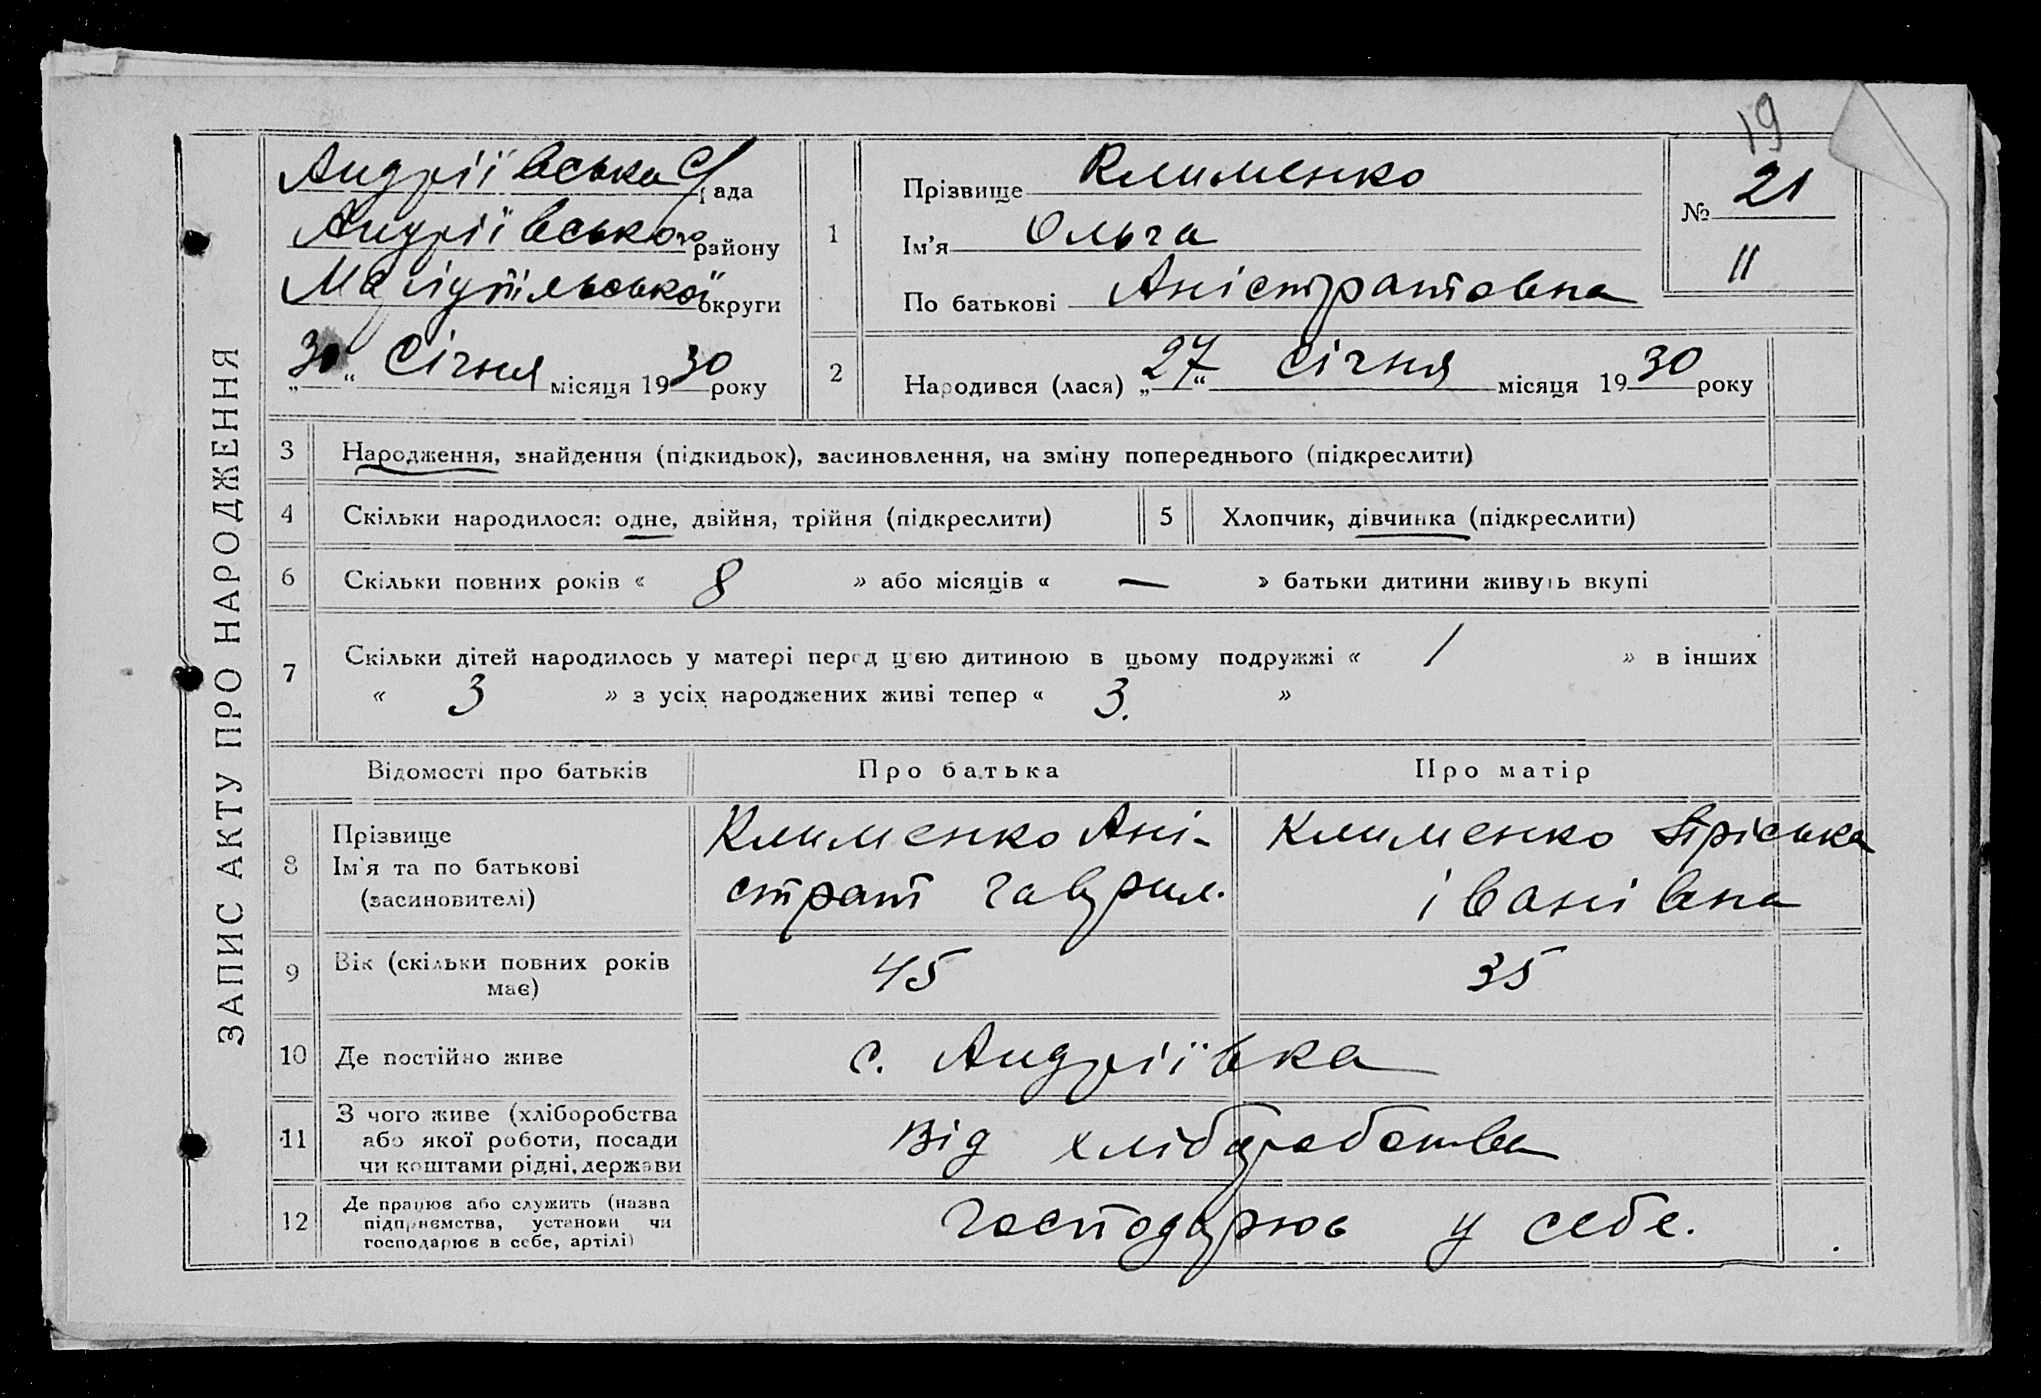 19
ЗАПИС АКТУ ПРО НАРОДЖЕННЯ
Андріївська С/рада
Андріївського району
Маріупільської округи
„30“ Січня місяця 1930 року
1
Прізвище Клименко
Ім'я Ольга
По батькові Аністратовна
№ 21
11
2
Народився (лася) „27“ січня місяця 1930 року
3 Народження, знайдення (підкидьок), засиновлення, на зміну попереднього (підкреслити)
4 Скільки народилося: одне, двійня, трійня (підкреслити) 5 Хлопчик, дівчинка (підкреслити)
6 Скільки повних років « 8 » або місяців « — » батьки дитини живуть вкупі
7 Скільки дітей народилось у матері перед цією дитиною в цьому подружжі « 1 » в інших
« 3 » з усіх народжених живі тепер « 3. »
Відомості про батьків Про батька Про матір
8 Прізвище
Ім'я та по батькові
(засиновителі)
Клименко Ані-
страт гаврил.
Клименко Пріська
іванівна
9 Вік (скільки повних років
має)
45 35
10 Де постійно живе с. Андріївка
11 З чого живе (хліборобства
або якої роботи, посади
чи коштами рідні, держави
Від хліборобства
12 Де працює або служить (назва
підприємства, установи чи
господарює в себе, артілі)
господарює у себе.